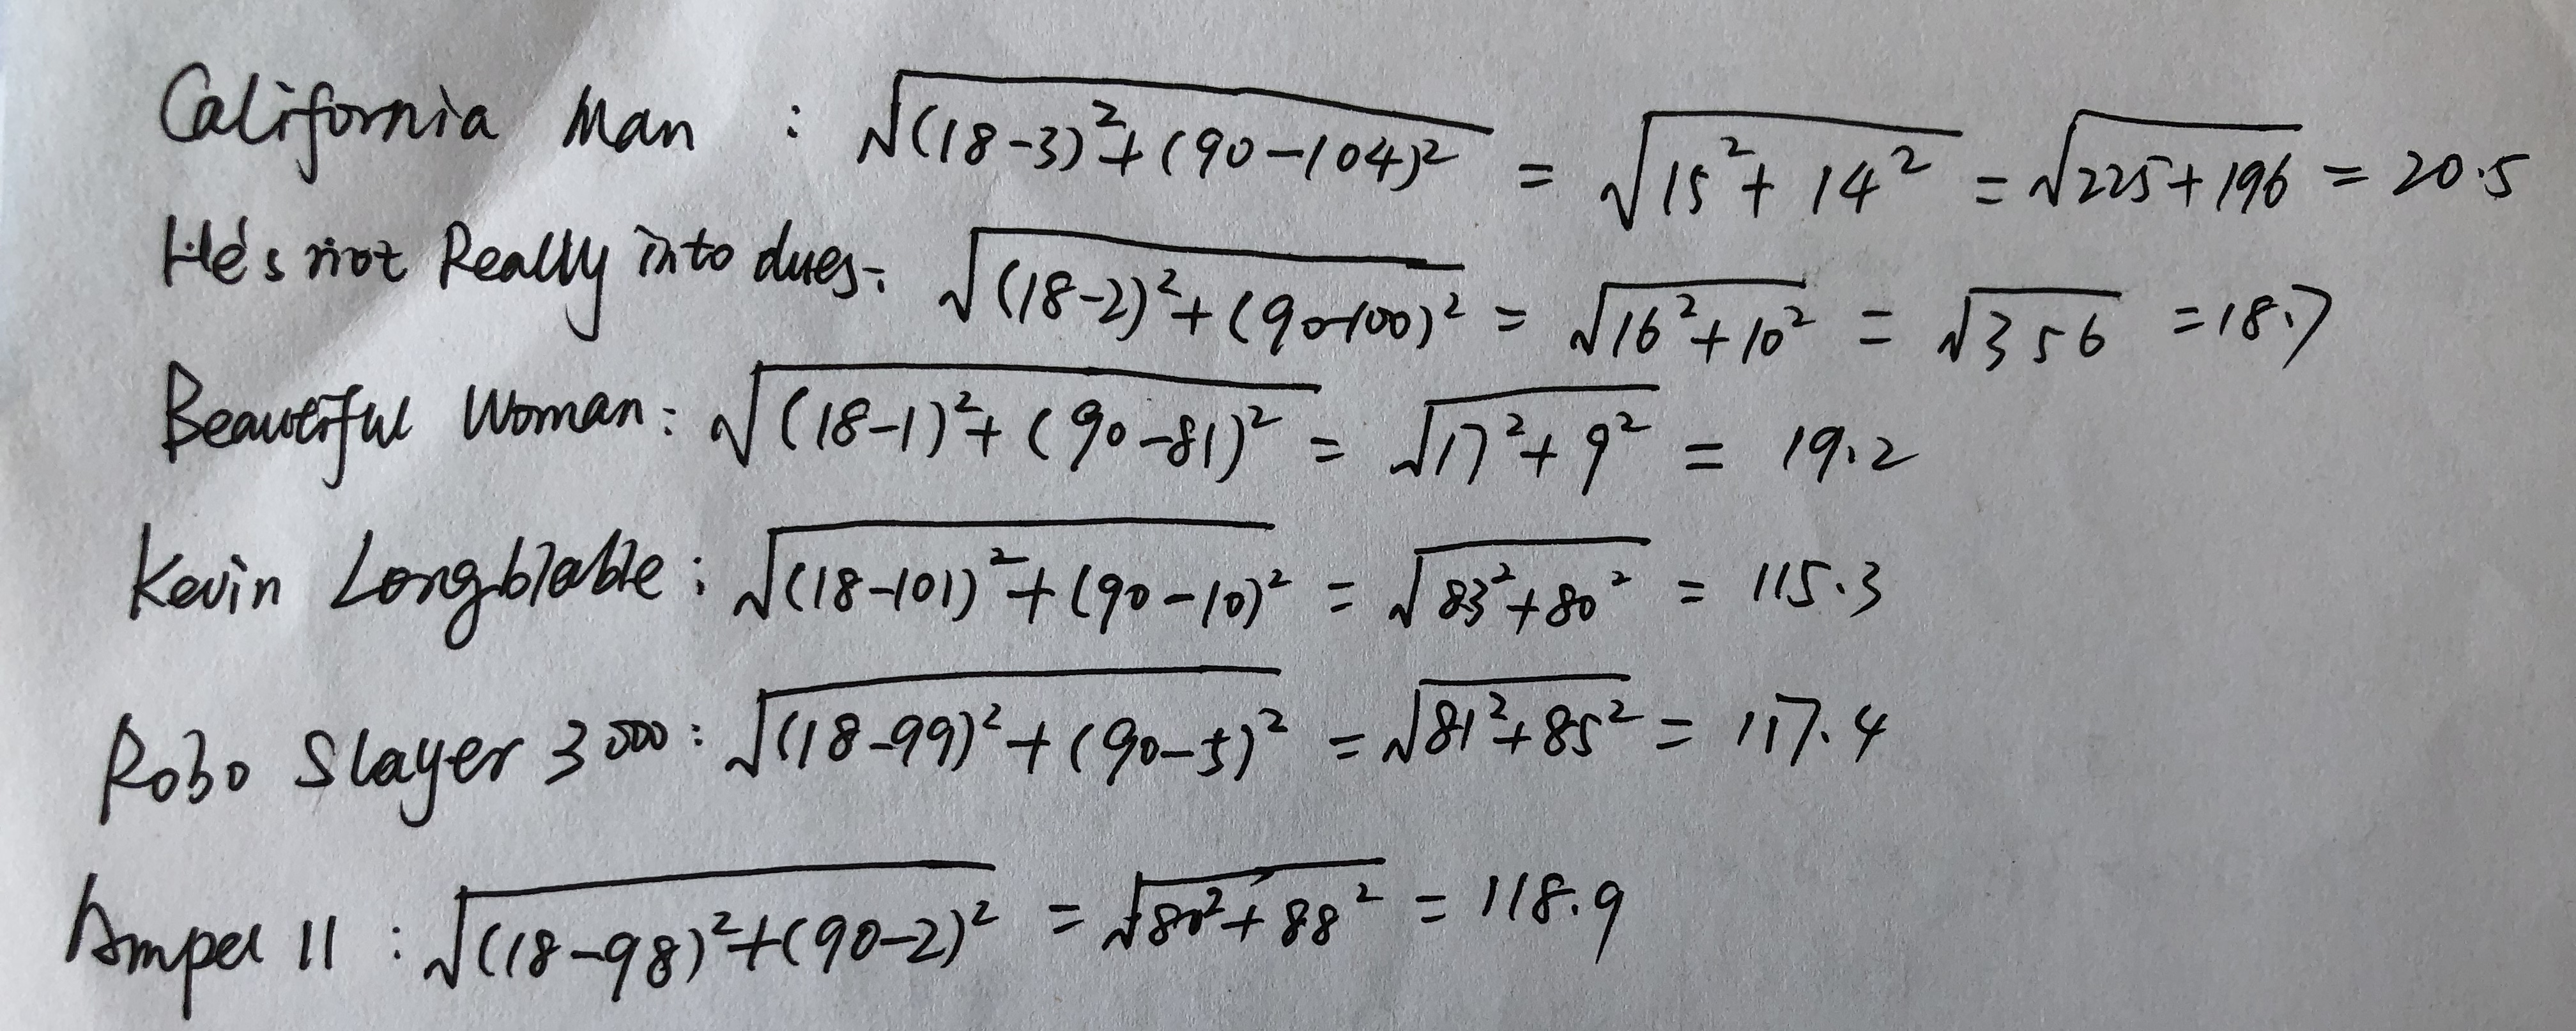 California Man : √(18-3)²+(90-104)² = √15²+14² = √225+196 = 20.5
He's not Really into dues: √(18-2)²+(90-100)² = √16²+10² = √356 = 18.7
Beautiful Woman: √(18-1)²+(90-81)² = √17²+9² = 19.2
Kevin Longblable: √(18-101)²+(90-10)² = √83²+80² = 115.3
Robo Slayer 3000: √(18-99)²+(90-5)² = √81²+85² = 117.4
Amped II : √(18-98)²+(90-2)² = √80²+88² = 118.9